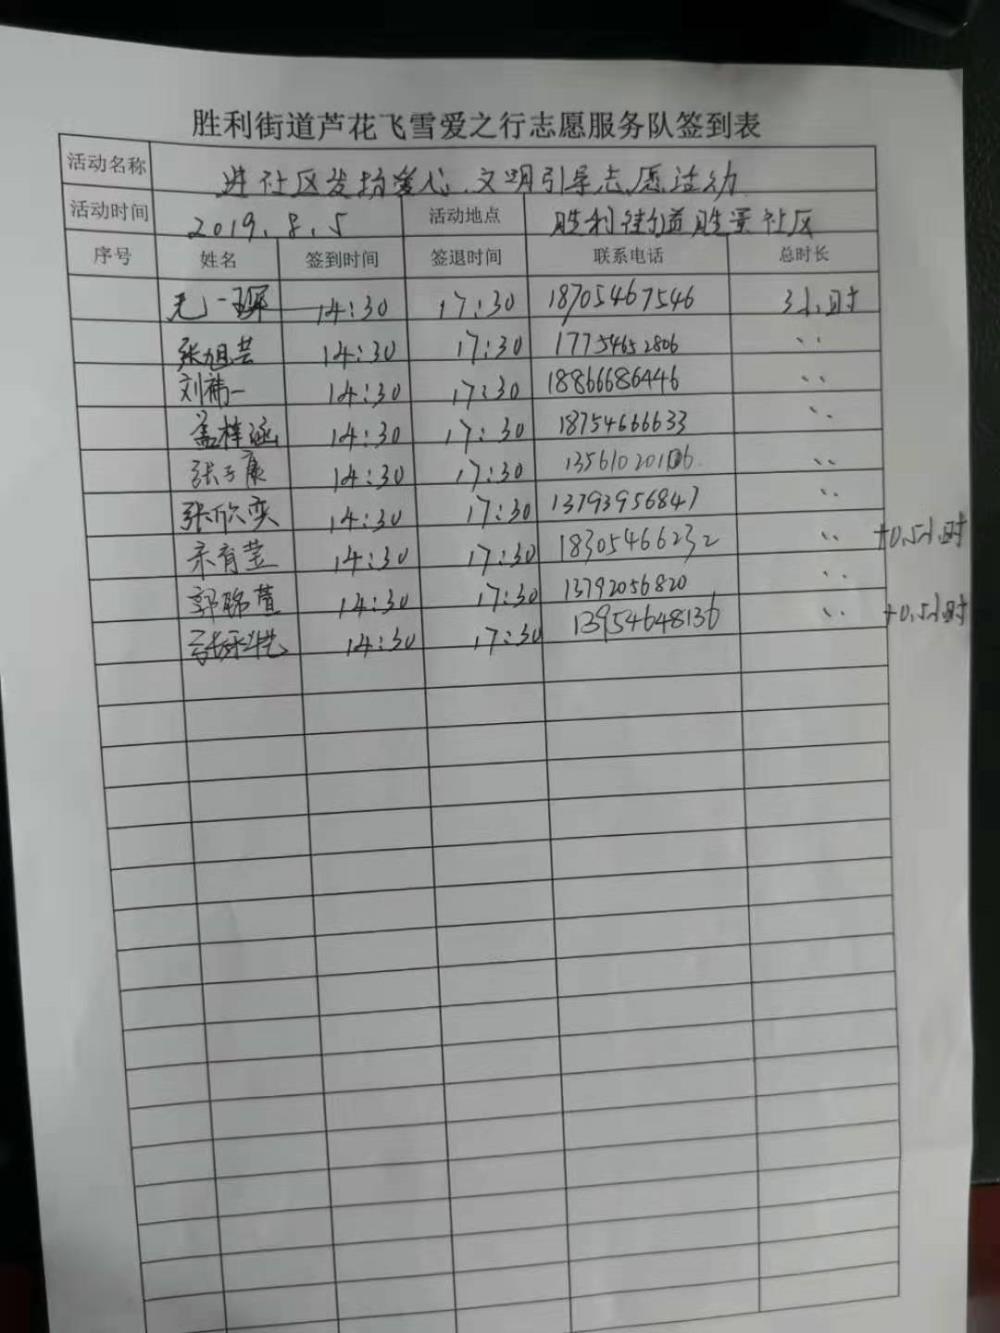 胜利街道芦花飞雪爱之行志愿服务队签到表
活动名称 进社区发扬爱心、文明引导志愿活动
活动时间 2019.8.5 活动地点 胜利街道胜采社区
序号 姓名 签到时间 签退时间 联系电话 总时长
一 14:30 17:30 18705467546 3小时
张旭芸 14:30 17:30 17754652806 〃
刘祎一 14:30 17:30 18866686446 〃
孟梓涵 14:30 17:30 18754666633 〃
张子康 14:30 17:30 〃
张欣奕 14:30 17:30 13793956847 〃
宋育莹 14:30 17:30 18305466232 〃 +0.5小时
郭铭萱 14:30 17:30 13792056820 〃
14:30 17:30 13954648136 〃 +0.5小时